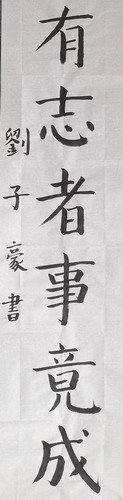 有志者事竟成
劉子豪書